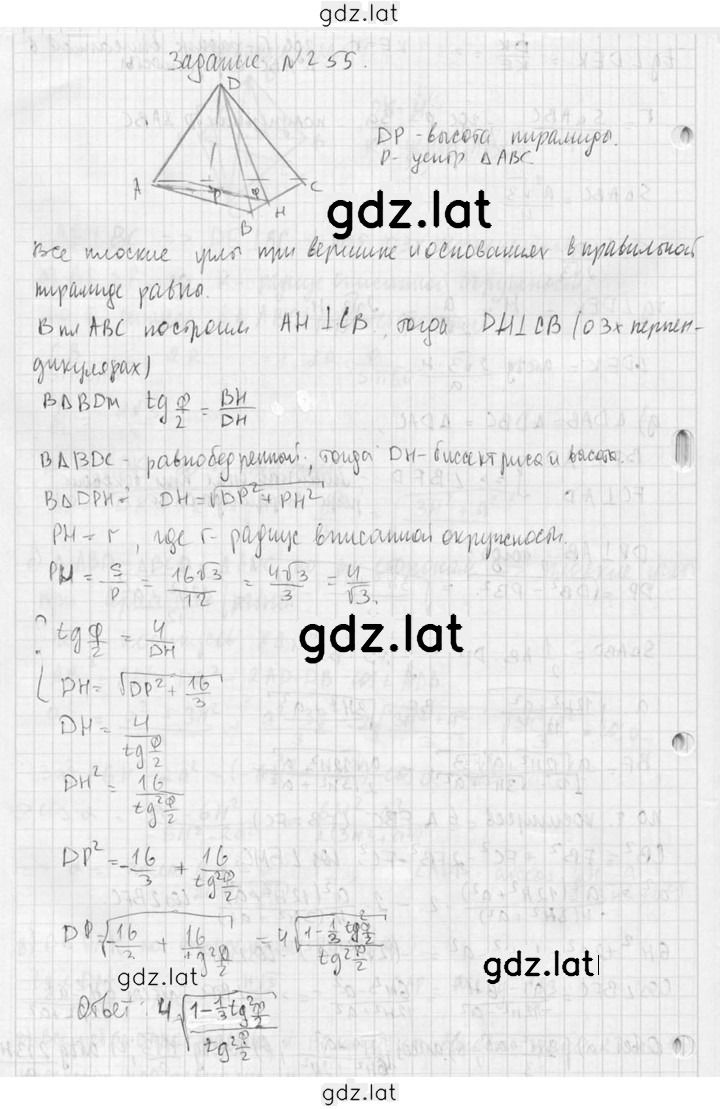 gdz.lat
Задание №255.
D
A
P
φ
C
H
B
DP - высота пирамиды.
P - центр ΔABC.
gdz.lat
Все плоские углы при вершине и основаниях в правильной
пирамиде равны.
В пл ABC построим AH⊥CB, тогда DH⊥CB (о 3х перпен-
дикулярах)
В ΔBDH tg φ/2 = BH/DH
В ΔBDC - равнобедренной, тогда DH - биссектриса и высота.
В ΔDPH: DH = √(DP² + PH²)
PH = r, где r - радиус вписанной окружности.
PH = S/P = 16√3/12 = 4√3/3 = 4/√3.
gdz.lat
{ tg φ/2 = 4/DH
DH = √(DP² + 16/3)
DH = 4/tg φ/2
DH² = 16/tg² φ/2
DP² = -16/3 + 16/tg² φ/2
DP = √(-16/3 + 16/tg² φ/2) = 4√((1 - 1/3 tg² φ/2)/tg² φ/2)
gdz.lat
Ответ: 4√((1 - 1/3 tg² φ/2)/tg² φ/2)
gdz.lat